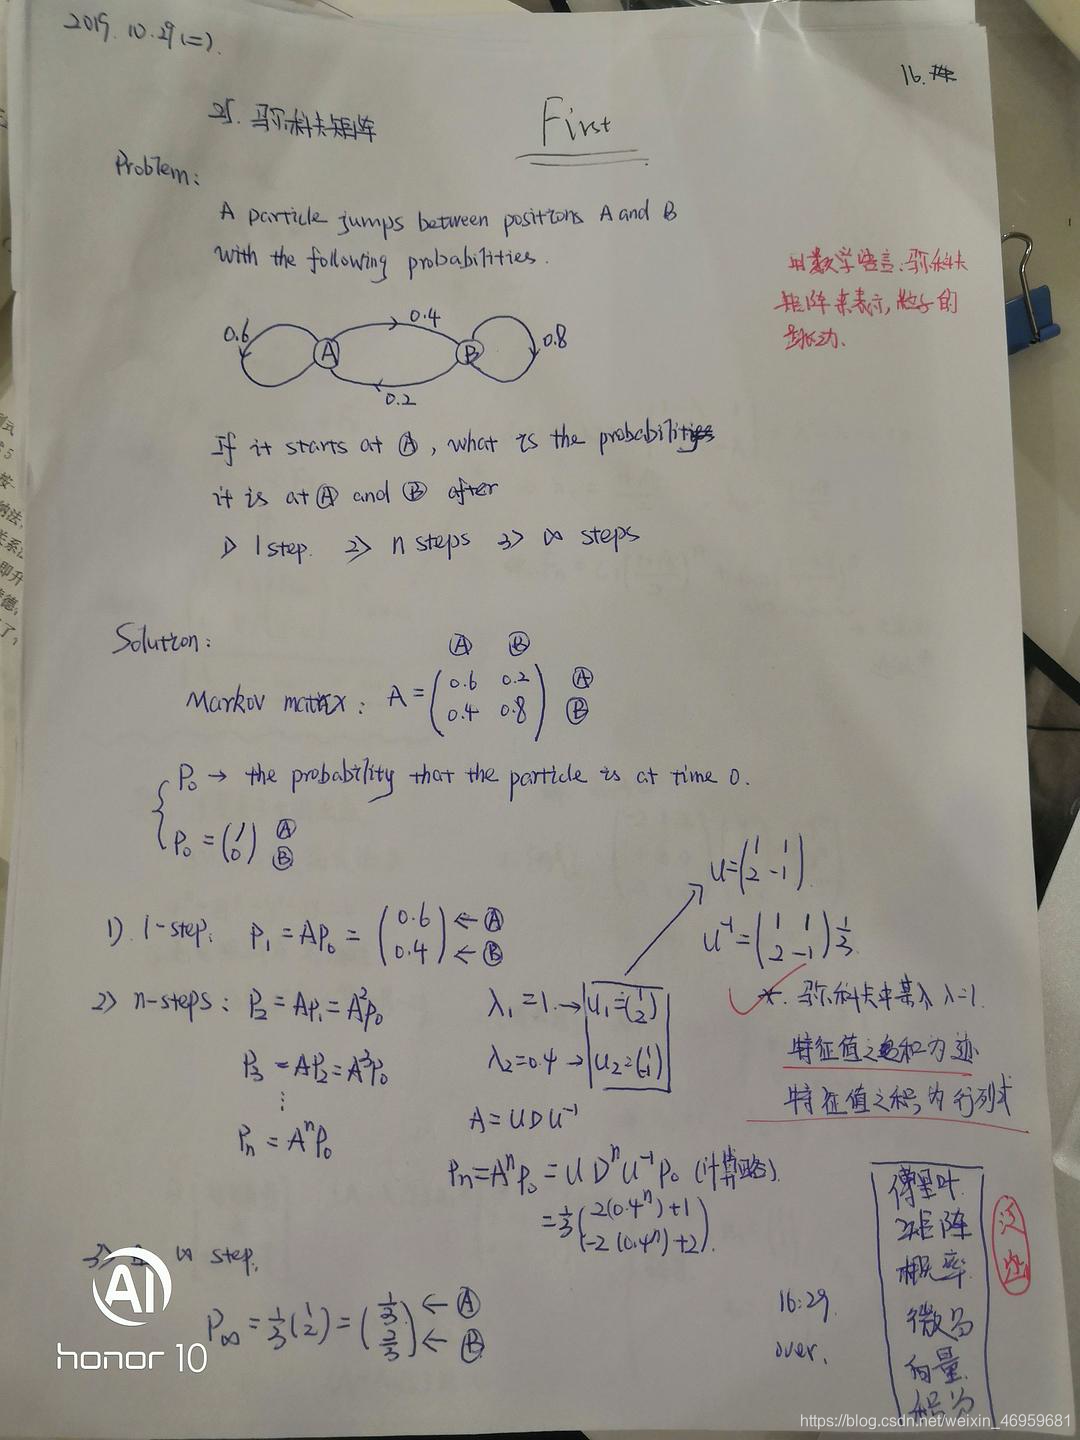 2019.10.29(二).
16.
25. 马尔科夫矩阵
First
Problem:
A particle jumps between positions A and B
with the following probabilities.
用数学语言:马尔科夫
矩阵来表示,粒子的
跳动.
0.6
A
0.4
B
0.8
0.2
If it starts at Ⓐ, what is the probability
it is at Ⓐ and Ⓑ after
1> 1 step. 2> n steps 3> ∞ steps
Solution:
Ⓐ Ⓑ
Markov matrix: A = (0.6 0.2) Ⓐ
(0.4 0.8) Ⓑ
P₀ → the probability that the particle is at time 0.
P₀ = (1) Ⓐ
(0) Ⓑ
u=(1 1)
(2 -1).
1) 1-step: P₁ = AP₀ = (0.6) ← Ⓐ
(0.4) ← Ⓑ
u⁻¹=(1 1)
(2 -1) 1/3.
2> n-steps: P₂ = AP₁ = A²P₀
λ₁ = 1. → u₁=(1 2)
*. 马尔科夫中某λ λ=1.
P₃ = AP₂ = A³P₀
λ₂=0.4 → u₂=(1 -1)
特征值之和为迹
特征值之积为行列式
⋮
A = UDU⁻¹
Pₙ = AⁿP₀
Pₙ=AⁿP₀ = U Dⁿ U⁻¹ P₀ (计算略).
= 1/3 (2(0.4ⁿ)+1)
(-2(0.4ⁿ)+2).
3> ∞ step.
P∞ = 1/3 (1 2) = (1/3) ← Ⓐ
(2/3) ← Ⓑ
16:29.
over.
傅里叶
矩阵
概率
微分
向量
积分
AI
honor 10
https://blog.csdn.net/weixin_46959681